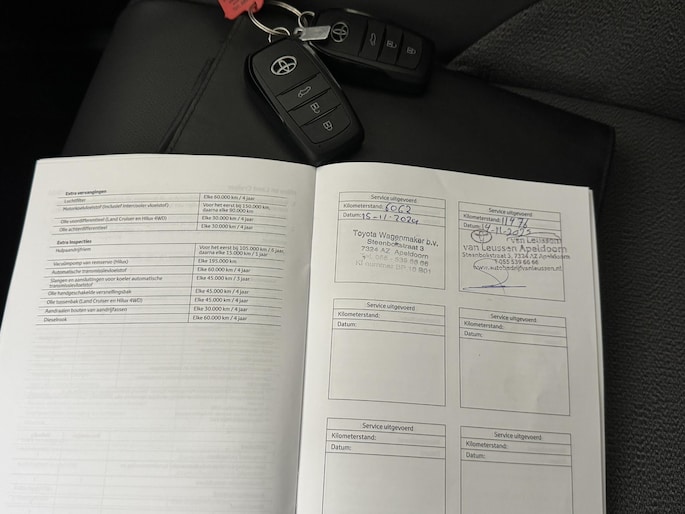 Extra vervangingen
Luchtfilter Elke 60.000 km / 4 jaar
Motorkoelvloeistof (inclusief intercooler vloeistof) Voor het eerst bij 150.000 km,
daarna elke 90.000 km
Olie voordifferentieel (Land Cruiser en Hilux 4WD) Elke 30.000 km / 4 jaar
Olie achterdifferentieel Elke 30.000 km / 4 jaar
Extra inspecties
Hulpaandrijfriem Voor het eerst bij 105.000 km / 6 jaar,
daarna elke 15.000 km / 1 jaar
Vacuümpomp van remservo (Hilux) Elke 195.000 km
Automatische transmissievloeistof Elke 60.000 km / 4 jaar
Slangen en aansluitingen voor koeler automatische
transmissievloeistof Elke 45.000 km / 3 jaar
Olie handgeschakelde versnellingsbak Elke 45.000 km / 4 jaar
Olie tussenbak (Land Cruiser en Hilux 4WD) Elke 45.000 km / 4 jaar
Aandraaien bouten van aandrijfassen Elke 30.000 km / 4 jaar
Dieselrook Elke 60.000 km / 4 jaar
Service uitgevoerd
Kilometerstand: 6062
Datum: 15-11-2024
Toyota Wagenmaker b.v.
Steenbokstraat 3
7324 AZ Apeldoorn
Tel. 055 - 539 66 66
Service uitgevoerd
Kilometerstand: 11976
Datum: 14-11-2025
van Leussen
van Leussen Apeldoorn
Steenbokstraat 3, 7324 AZ Apeldoorn
T 055 539 66 66
www.autobedrijfvanleussen.nl
Service uitgevoerd
Kilometerstand:
Datum:
Service uitgevoerd
Kilometerstand:
Datum:
Service uitgevoerd
Kilometerstand:
Datum:
Service uitgevoerd
Kilometerstand:
Datum: